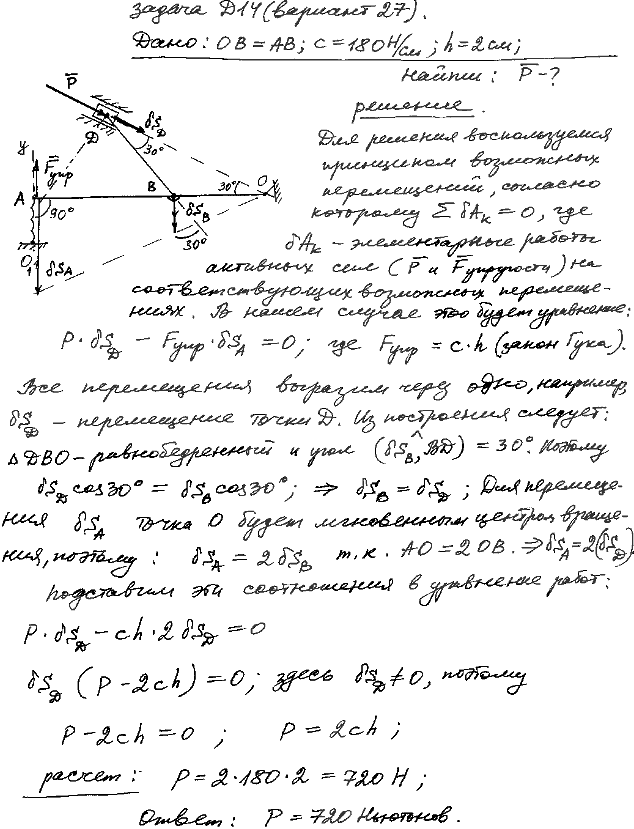 задача D14 (вариант 27).
Дано: OB = AB; c = 180 Н/см; h = 2 см;
Найти: P̅ - ?
решение.
Для решения воспользуемся
принципом возможных
перемещений, согласно
которому Σ δA_k = 0, где
δA_k – элементарные работы
активных сил (P̅ и F̅упругости) на
соответствующих возможных перемеще-
ниях. В нашем случае это будет уравнение:
P̅
δS_D
D
30°
y
F̅упр
A
B
30°
O
90°
δS_B
30°
O₁
δS_A
P · δS_D – Fупр · δS_A = 0; где Fупр = c·h (закон Гука).
Все перемещения выразим через одно, например,
δS_D – перемещение точки D. Из построения следует:
Δ DBO – равнобедренный и угол (δS_B^BD) = 30°. Поэтому
δS_D cos30° = δS_B cos30°; ⇒ δS_B = δS_D; Для перемеще-
ния δS_A точка O будет мгновенным центром враще-
ния, поэтому: δS_A = 2δS_B т.к. AO = 2OB. ⇒ δS_A = 2(δS_D).
Подставим эти соотношения в уравнение работ:
P · δS_D – ch · 2 δS_D = 0
δS_D (P – 2ch) = 0; здесь δS_D ≠ 0, поэтому
P – 2ch = 0 ; P = 2ch ;
расчет: P = 2·180·2 = 720 Н ;
Ответ: P = 720 Ньютонов.